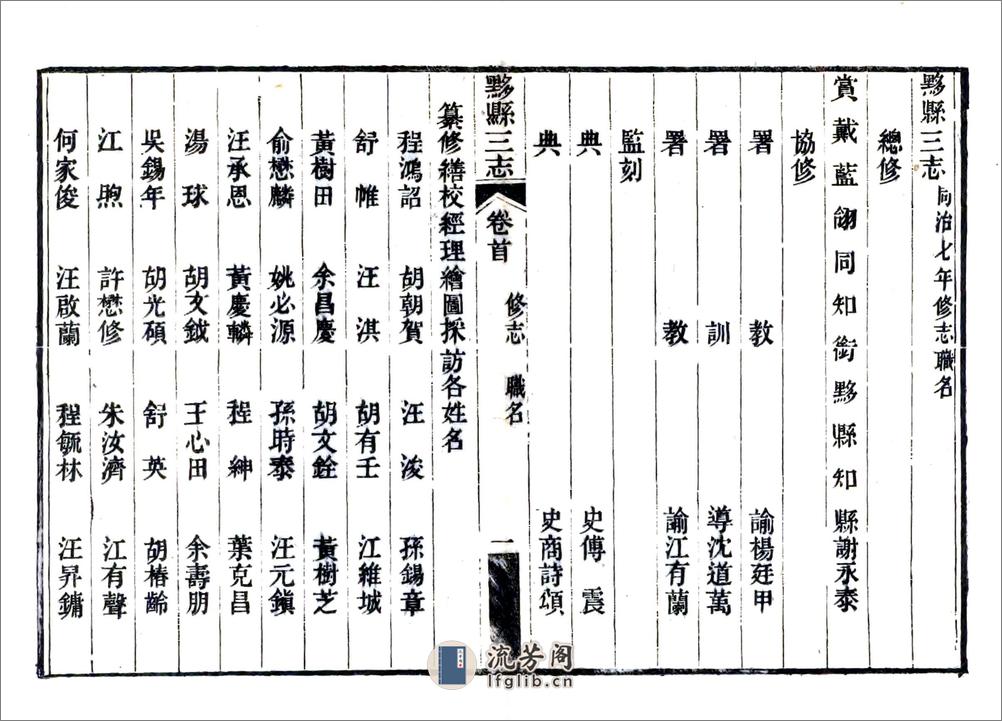 黟縣三志同治七年修志職名
總修
賞戴藍翎同知銜黟縣知縣謝永泰
協修
署教諭楊廷甲
署訓導沈道萬
署教諭江有蘭
監刻
典史傳震
典史商詩頌
黟縣三志 卷首 修志職名 一
纂修繕校經理繪圖採訪各姓名
程鴻詔 胡朝賀 汪浚 孫錫章
舒帷 汪淇 胡有壬 江維城
黃樹田 余昌慶 胡文銓 黃樹芝
俞懋麟 姚必源 孫時泰 汪元鎮
汪承恩 黃慶麟 程紳 葉克昌
湯球 胡文鉞 王心田 余壽朋
吳錫年 胡光碩 舒英 胡椿齡
江煦 許懋修 朱汝濟 江有聲
何家俊 汪啟蘭 程毓林 汪昇鏞
流芳阁
lfglib.cn